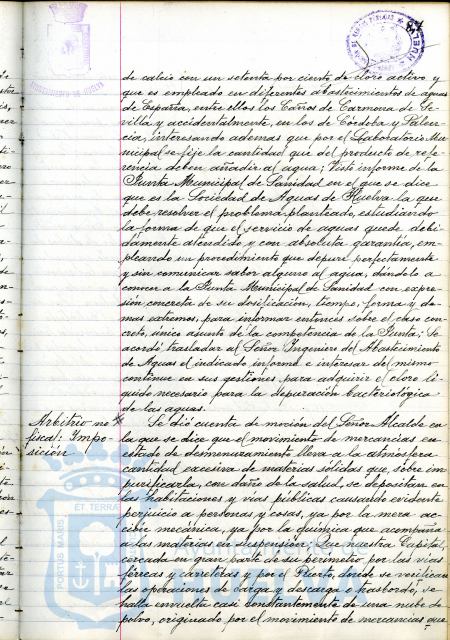 de calcio con un setenta por ciento de cloro activo y
que es empleado en diferentes abastecimientos de aguas
de España, entre ellos los Caños de Carmona de Se-
villa y accidentalmente, en los de Córdoba y Palen-
cia, interesando ademas que por el Laboratorio Mu-
nicipal se fije la cantidad que del producto de refe-
rencia deben añadir al agua; Visto informe de la
Junta Municipal de Sanidad en el que se dice
que es la Sociedad de Aguas de Huelva la que
debe resolver el problema planteado, estudiando
la forma de que el servicio de aguas quede debi-
damente atendido y con absoluta garantia, em-
pleando un procedimiento que depure perfectamente
y sin comunicar sabor alguno al agua, dándolo a
conocer a la Junta Municipal de Sanidad con expre-
sión concreta de su dosificación, tiempo, forma y de-
mas extremos, para informar entonces sobre el caso con-
creto, único asunto de la competencia de la Junta; Se
acordó trasladar al Señor Ingeniero del Abastecimiento
de Aguas el indicado informe e interesar del mismo
continue en sus gestiones para adquirir el cloro lí-
quido necesario para la depuración bacteriologica
de las aguas.
Arbitrio no
fiscal: Impo-
sición
Se dió cuenta de moción del Señor Alcalde en
la que se dice que el movimiento de mercancias en
estado de desmenuzamiento lleva a la atmósfera
cantidad excesiva de materias sólidas que, sobre im-
purificarla, con daño de la salud, se depositan en
las habitaciones y vias públicas causando evidente
perjuicio a personas y cosas, ya por la mera ac-
ción mecánica, ya por la quimica que acompaña
a las materias en suspensión. Que nuestra Capital,
cercada en gran parte de su perimetro por las vias
férreas y carreteras y por el Puerto, donde se verifican
las operaciones de carga y descarga o trasbordo, se
halla envuelta casi constantemente de una nube de
polvo, originado por el movimiento de mercancias que
AYUNTAMIENTO DE HUELVA
PORTUS MARIS
ET TERRAE
Ayuntamiento de